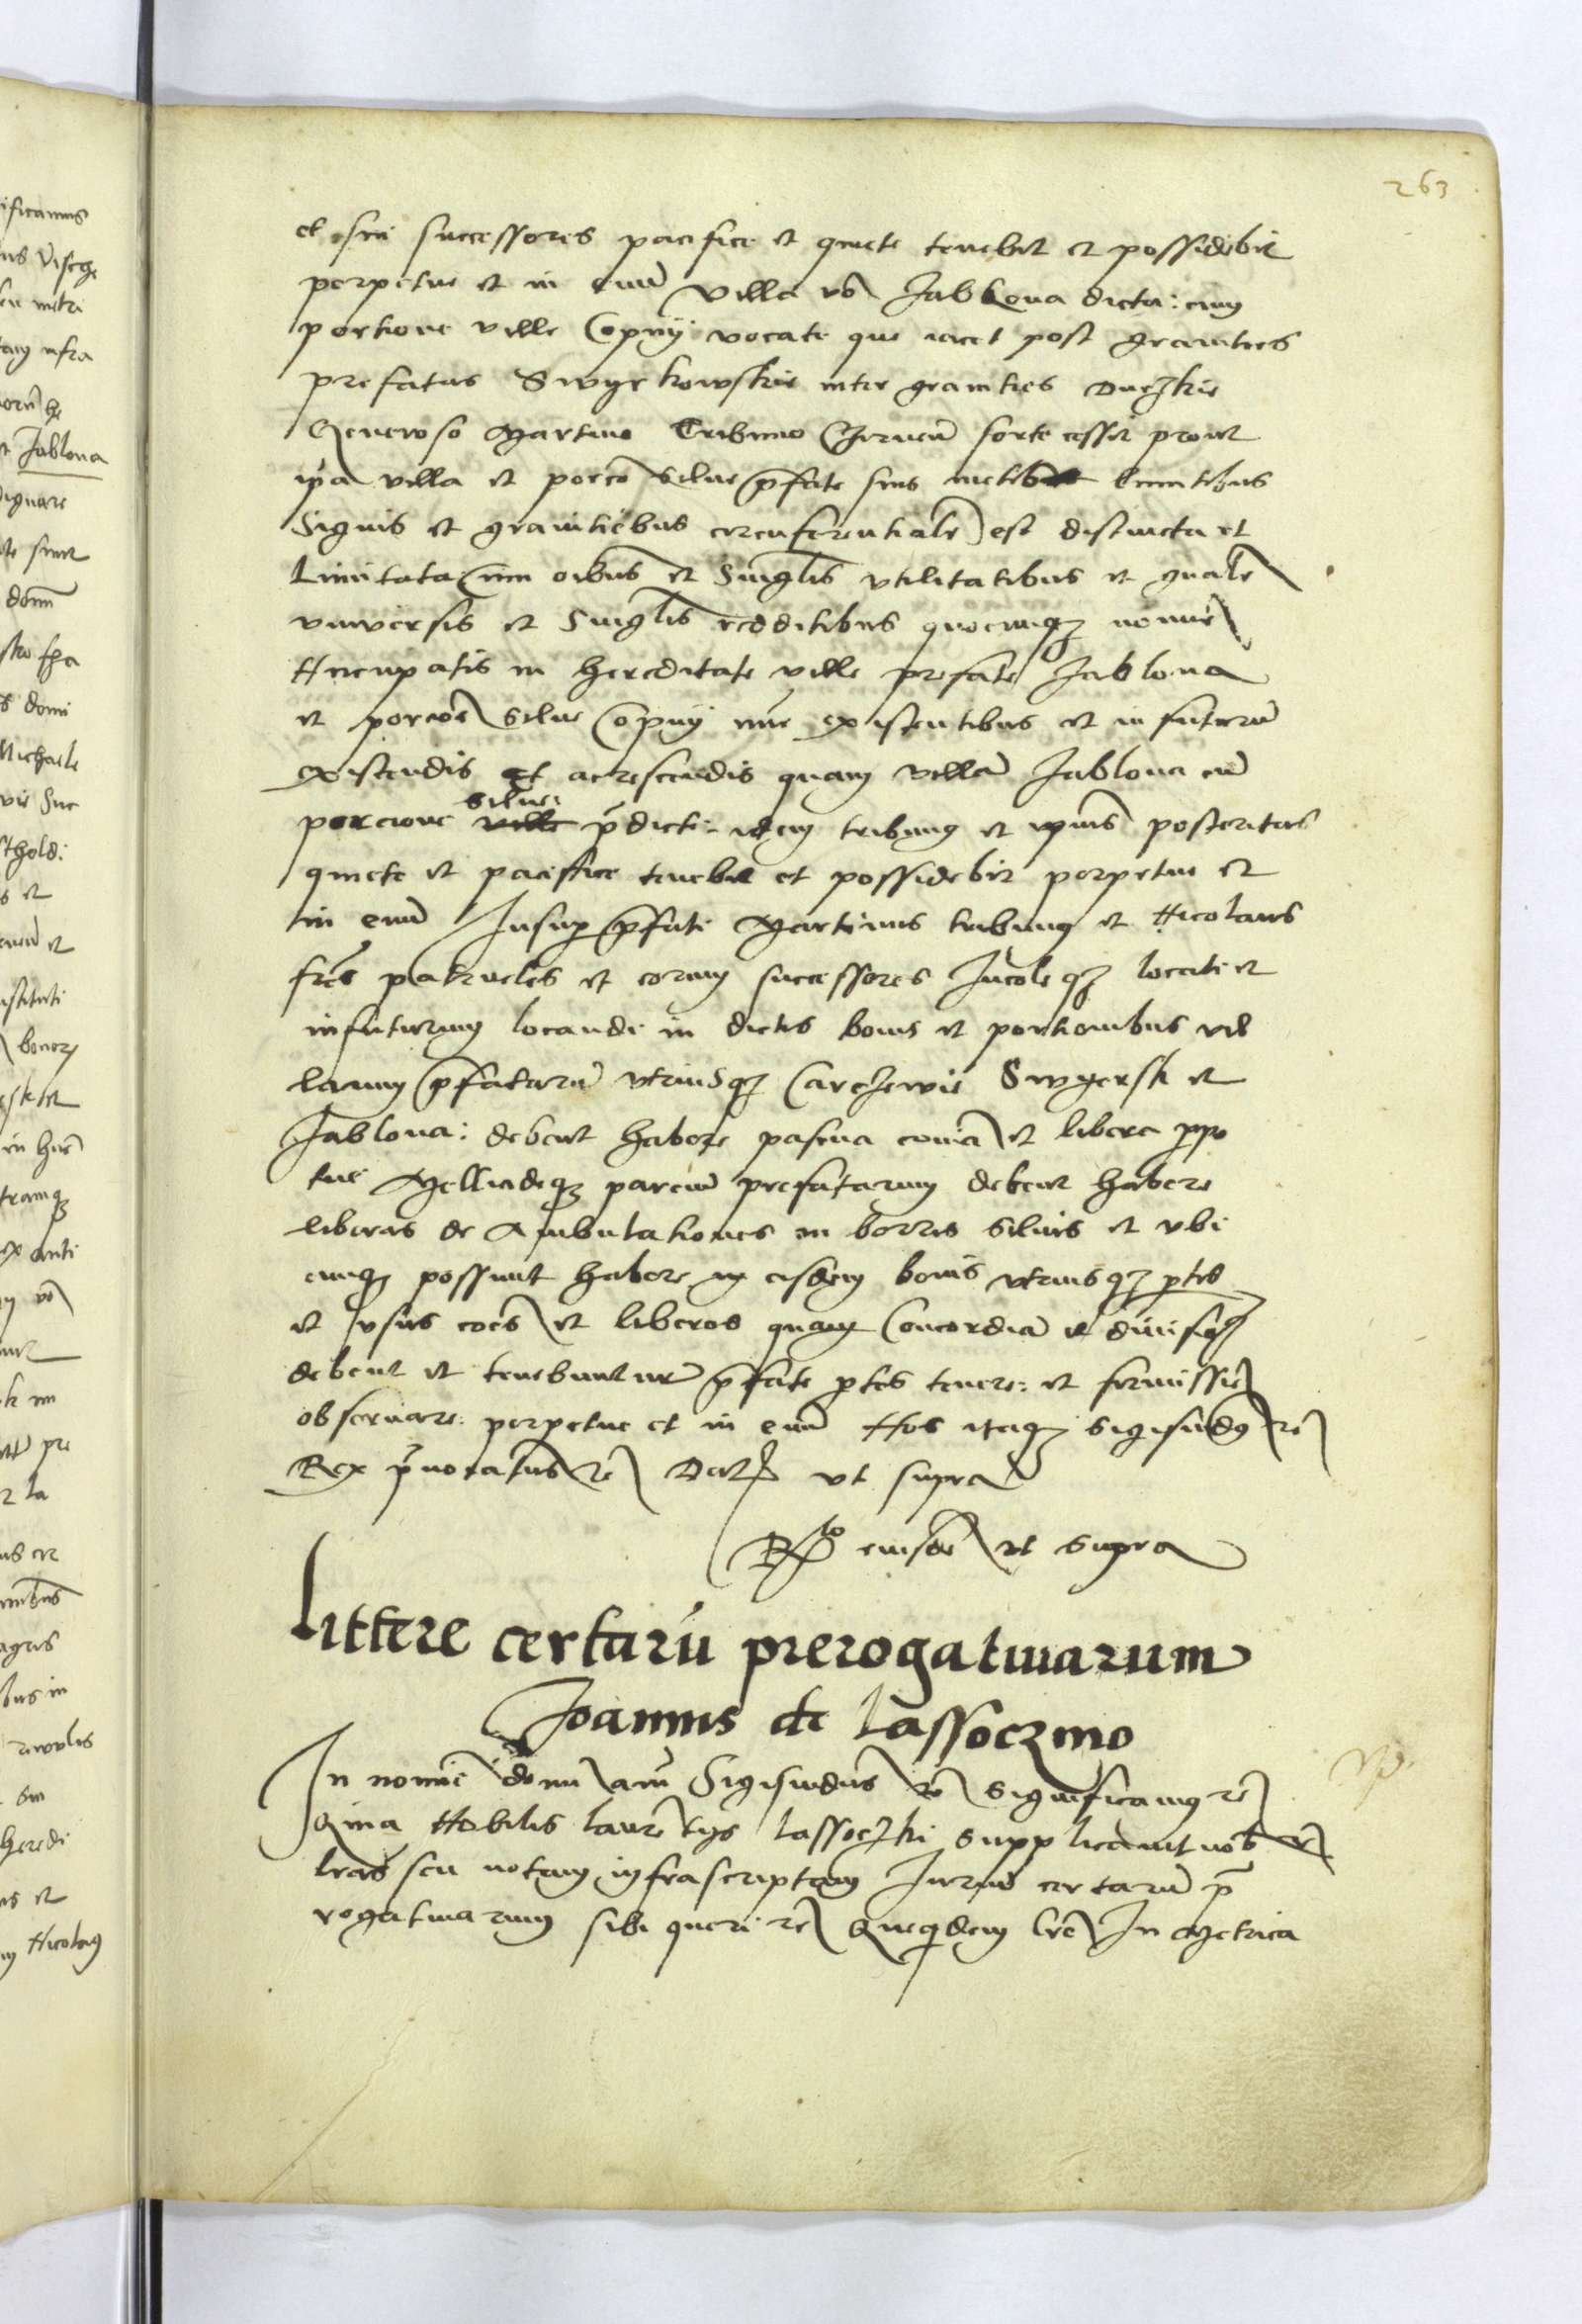 263
et sui successores pacifice et quiete tenebit et possidebit
perpetue et in euu Villa vo Jablona dicta: cum
portione ville Copnij vocate que iacet post granities
prefatas Swyrkowskie inter granities Duczkie
Generoso Martino Tribuno Cernen sorte cessit prout
ipa villa et porco Silue pfate suis metis limitibus
Signis et granitiebus circuferentiale est distincta et
Limitata Cum oibus et Singlis vtilitatibus et gnale
vniversis et Singlis redditibus quocunq nomie
Nncupatis in hereditate ville prefate Jablona
et porcoe Silue Copnij nuc existentibus et in futuru
existendis et acrescendis quam villa Jablona cu
porcione ville silue: pdicte idem tribunus et ipius posteritas
quiete et paciffice tenebit et possidebit perpetue et
in euu Insup pfati Martinus tribunus et Nicolaus
fres patrueles et eorum successores Incoleq locati et
infuturum locandi in dictis bonis et portionibus vil
larum pfataru vtriusq Carczewie Swyersk et
Jablona: debent habere pascua coia et libera ppe
tue Mellicideq parciu prefatarum debent habere
liberas de Ambulationes in borris siluis et vbi
cunq possunt habere in eisdem bonis vtriusq ptis
et vsus coes et liberos quam Concordia et diuisioe
debent et tenebuntur pfate ptes tenere: et firmissie
obseruare: perpetue et in euu Nos itaq Sigisudus re
Rex pnotatus re Dat vt supra
Rlo eiusde vt supra
Littere certaru prerogatiuarum
Joannis de Lassoczino
In nomie domi am Sigisudus re significamus re
Quia Nobilis Laurentius Lassoczki supplicauit nob vt
lras seu notam infrascriptam Jurium certaru p
rogatiuarum sibi queri re Quequidem lre In Metrica